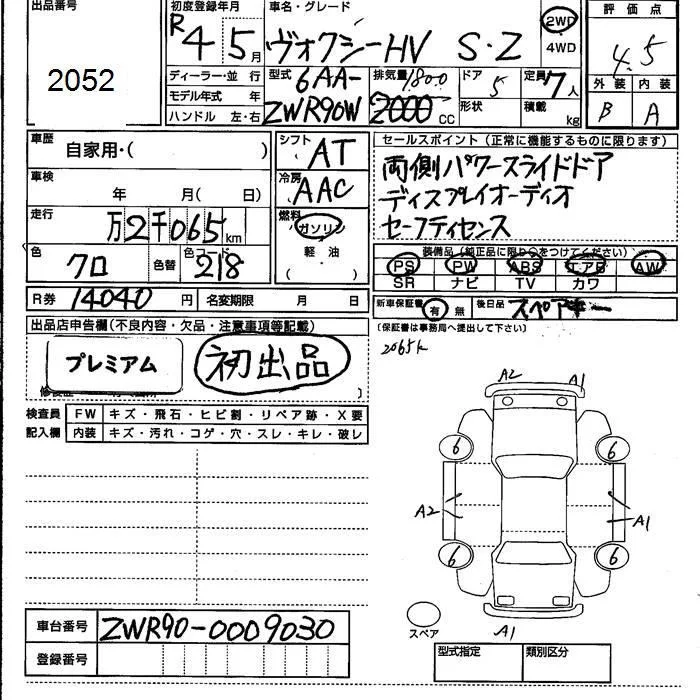 出品番号
2052
初度登録年月
R 4 年 5 月
車名・グレード
ヴォクシーHV S・Z
2WD
4WD
評価点
4.5
外装 内装
B A
ディーラー・並 行
モデル年式 年
ハンドル 左・右
型式
6AA-
ZWR90W
排気量 1800
2000 cc
ドア
5
形状
定員
7人
積載
kg
車歴
自家用・( )
車検
年 月(日)
走行
万2千065km
色
クロ
色替
色コード
218
シフト
AT
冷房
AAC
燃料
ガソリン
軽・油
( )
セールスポイント(正常に機能するものに限ります)
両側パワースライドドア
ディスプレイオーディオ
セーフティセンス
装備品(純正品に限り○をつけてください)
PS PW ABS エアB AW
SR ナビ TV カワ
R券 14040 円 名変期限 月 日
新車保証書 有 無 後日品 スペアキー
(保証書は事務局へ提出して下さい)
2065k
出品店申告欄(不良内容・欠品・注意事項等記載)
プレミアム
初出品
検査員
記入欄
FW キズ・飛石・ヒビ割・リペア跡・X要
内装 キズ・汚れ・コゲ・穴・スレ・キレ・破レ
A2 A1
6 6
A2 A1
6 6
スペア
A1
車台番号 ZWR90-0009030
登録番号
型式指定 類別区分